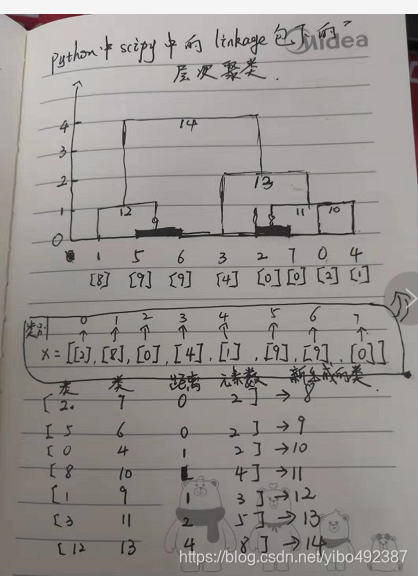 python中scipy中的linkage包下的
Midea
层次聚类.
4 14
3
2 13
1 12 9 8 11 10
0
1 5 6 3 2 7 0 4
[8] [9] [9] [4] [0] [0] [2] [1]
类别 0 1 2 3 4 5 6 7
X = [[2], [8], [0], [4], [1], [9], [9], [0]]
类 类 距离 元素数 新生成的类
[2. 7 0 2] → 8
[5 6 0 2] → 9
[0 4 1 2] → 10
[8 10 1 4] → 11
[1 9 1 3] → 12
[3 11 2 5] → 13
[12 13 4 8] → 14
https://blog.csdn.net/yibo492387